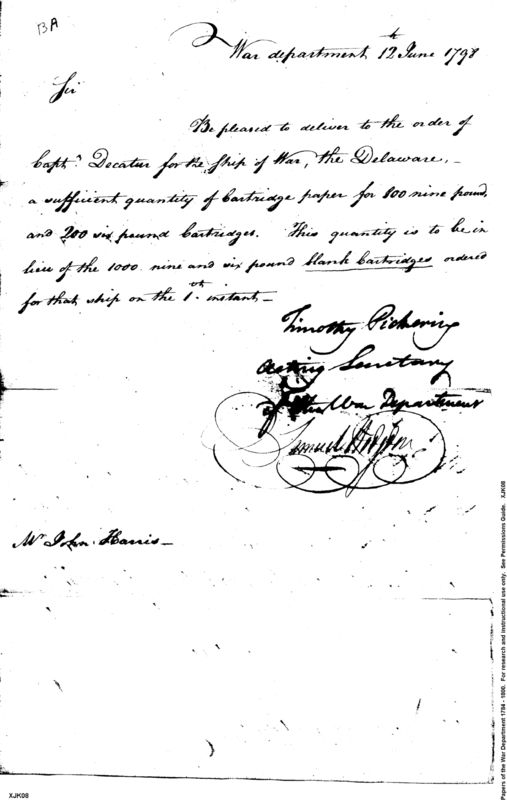 BA
War department 12th June 1798
Sir
Be pleased to deliver to the order of
Captn. Decatur for the Ship of War, the Delaware, -
a sufficient quantity of Cartridge paper for 800 nine pound,
and 200 six pound Cartridges. This quantity is to be in
lieu of the 1000 nine and six pound blank Cartridges ordered
for that ship on the 1st instant -
Timothy Pickering
Acting Secretary
of the War Department
Samuel
Mr John Harris -
XJK08
Papers of the War Department 1784 - 1800. For research and instructional use only. See Permissions Guide. XJK08